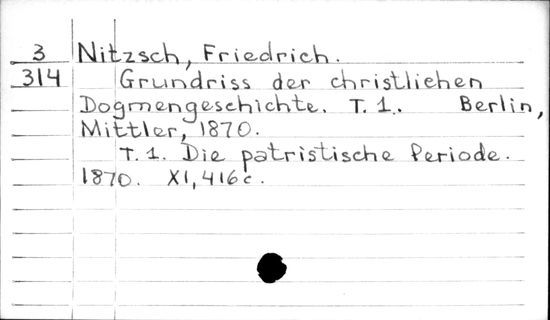 3 Nitzsch, Friedrich.
314 Grundriss der christlichen
Dogmengeschichte. T. 1. Berlin,
Mittler, 1870.
T. 1. Die patristische Periode.
1870. XI, 416 c.